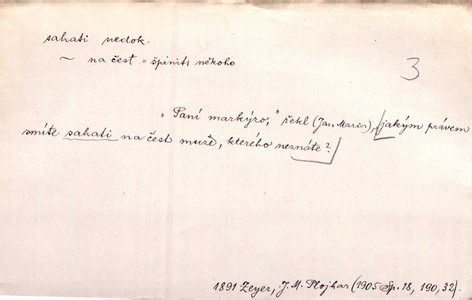 sahati nedok.
~ na čest = špiniti někoho
3
„Paní markýzo," řekl (Jan Maria), jakým právem
smíte sahati na čest muže, kterého neznáte?
1891 Zeyer, J. M. Plojhar (1905 Sp. 18, 190, 32).